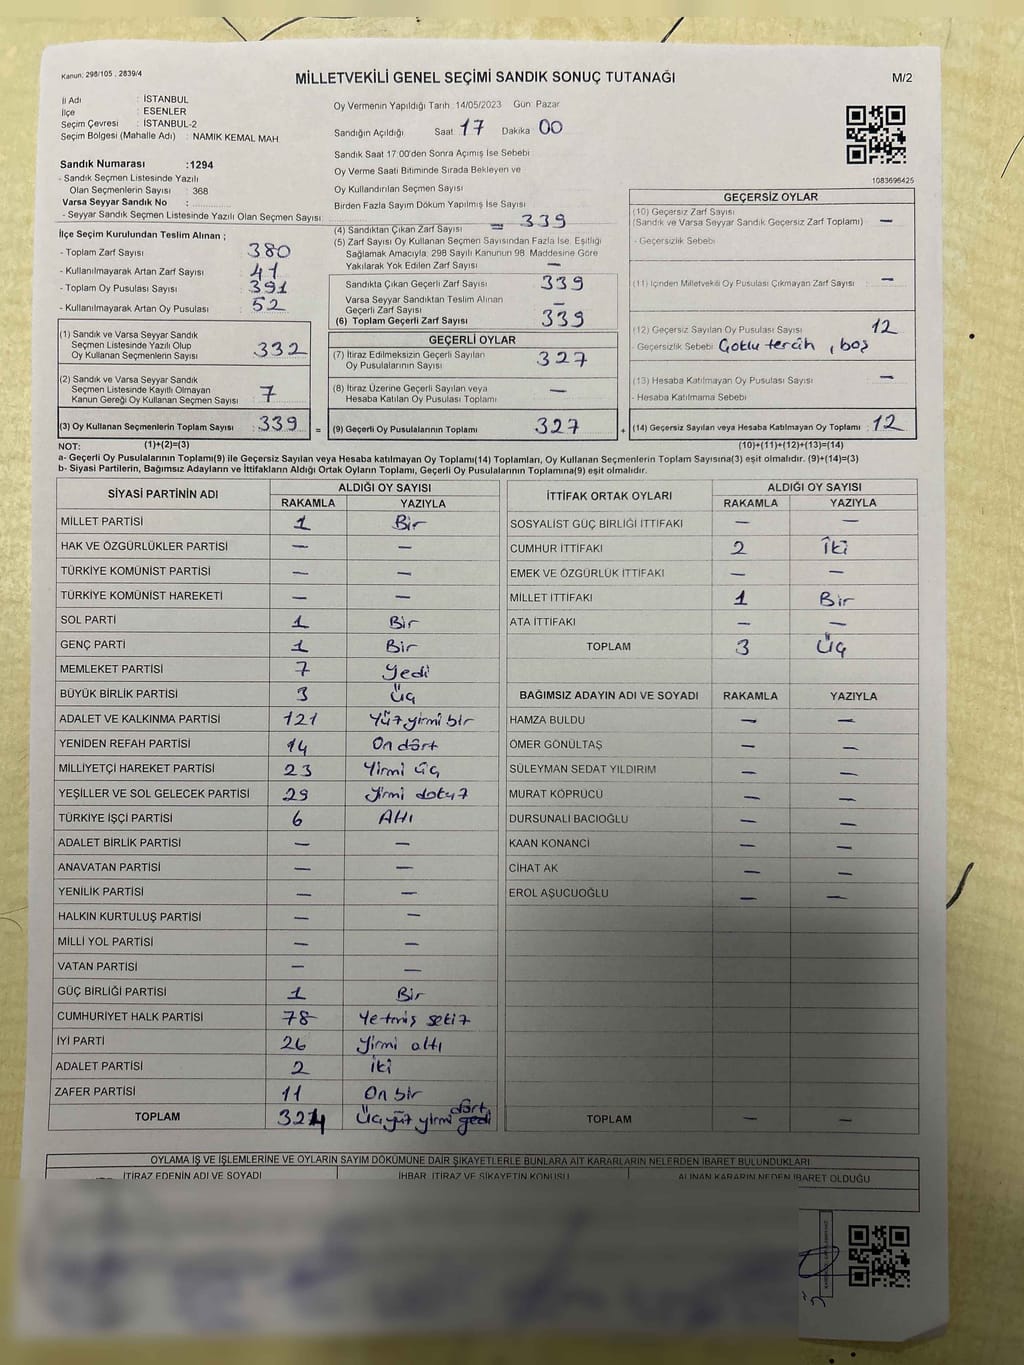 Kanun: 298/105 , 2839/4
MİLLETVEKİLİ GENEL SEÇİMİ SANDIK SONUÇ TUTANAĞI
M/2
İl Adı : İSTANBUL
İlçe : ESENLER
Seçim Çevresi : İSTANBUL-2
Seçim Bölgesi (Mahalle Adı) : NAMIK KEMAL MAH
Oy Vermenin Yapıldığı Tarih 14/05/2023 Gün Pazar
Sandığın Açıldığı Saat 17 Dakika 00
Sandık Saat 17 00'den Sonra Açımış İse Sebebi
Oy Verme Saati Bitiminde Sırada Bekleyen ve
Oy Kullandırılan Seçmen Sayısı
Birden Fazla Sayım Döküm Yapılmış İse Sayısı
1083696425
Sandık Numarası :1294
- Sandık Seçmen Listesinde Yazılı
Olan Seçmenlerin Sayısı : 368
Varsa Seyyar Sandık No :
- Seyyar Sandık Seçmen Listesinde Yazılı Olan Seçmen Sayısı
İlçe Seçim Kurulundan Teslim Alınan ;
- Toplam Zarf Sayısı 380
- Kullanılmayarak Artan Zarf Sayısı 41
- Toplam Oy Pusulası Sayısı 391
- Kullanılmayarak Artan Oy Pusulası 52
(1) Sandık ve Varsa Seyyar Sandık
Seçmen Listesinde Yazılı Olup
Oy Kullanan Seçmenlerin Sayısı 332
(2) Sandık ve Varsa Seyyar Sandık
Seçmen Listesinde Kayıtlı Olmayan
Kanun Gereği Oy Kullanan Seçmen Sayısı 7
(3) Oy Kullanan Seçmenlerin Toplam Sayısı : 339 =
(4) Sandıktan Çıkan Zarf Sayısı = 339
(5) Zarf Sayısı Oy Kullanan Seçmen Sayısından Fazla İse, Eşitliği
Sağlamak Amacıyla, 298 Sayılı Kanunun 98. Maddesine Göre
Yakılarak Yok Edilen Zarf Sayısı —
Sandıkta Çıkan Geçerli Zarf Sayısı 339
Varsa Seyyar Sandıktan Teslim Alınan
Geçerli Zarf Sayısı —
(6) Toplam Geçerli Zarf Sayısı 339
GEÇERLİ OYLAR
(7) İtiraz Edilmeksizin Geçerli Sayılan
Oy Pusulalarının Sayısı 327
(8) İtiraz Üzerine Geçerli Sayılan veya
Hesaba Katılan Oy Pusulası Toplamı —
(9) Geçerli Oy Pusulalarının Toplamı 327 +
GEÇERSİZ OYLAR
(10) Geçersiz Zarf Sayısı
(Sandık ve Varsa Seyyar Sandık Geçersiz Zarf Toplamı) —
- Geçersizlik Sebebi
(11) İçinden Milletvekili Oy Pusulası Çıkmayan Zarf Sayısı : —
(12) Geçersiz Sayılan Oy Pusulası Sayısı 12
- Geçersizlik Sebebi Çoklu tercih , boş
(13) Hesaba Katılmayan Oy Pusulası Sayısı —
- Hesaba Katılmama Sebebi
(14) Geçersiz Sayılan veya Hesaba Katılmayan Oy Toplamı : 12
NOT: (1)+(2)=(3) (10)+(11)+(12)+(13)=(14)
a- Geçerli Oy Pusulalarının Toplamı(9) ile Geçersiz Sayılan veya Hesaba katılmayan Oy Toplamı(14) Toplamları, Oy Kullanan Seçmenlerin Toplam Sayısına(3) eşit olmalıdır. (9)+(14)=(3)
b- Siyasi Partilerin, Bağımsız Adayların ve İttifakların Aldığı Ortak Oyların Toplamı, Geçerli Oy Pusulalarının Toplamına(9) eşit olmalıdır.
SİYASİ PARTİNİN ADI ALDIĞI OY SAYISI
RAKAMLA YAZIYLA
MİLLET PARTİSİ 1 Bir
HAK VE ÖZGÜRLÜKLER PARTİSİ — —
TÜRKİYE KOMÜNİST PARTİSİ — —
TÜRKİYE KOMÜNİST HAREKETİ — —
SOL PARTİ 1 Bir
GENÇ PARTİ 1 Bir
MEMLEKET PARTİSİ 7 Yedi
BÜYÜK BİRLİK PARTİSİ 3 Üç
ADALET VE KALKINMA PARTİSİ 121 Yüzyirmi bir
YENİDEN REFAH PARTİSİ 14 On dört
MİLLİYETÇİ HAREKET PARTİSİ 23 Yirmi üç
YEŞİLLER VE SOL GELECEK PARTİSİ 29 Yirmi dokuz
TÜRKİYE İŞÇİ PARTİSİ 6 Altı
ADALET BİRLİK PARTİSİ — —
ANAVATAN PARTİSİ — —
YENİLİK PARTİSİ — —
HALKIN KURTULUŞ PARTİSİ — —
MİLLİ YOL PARTİSİ — —
VATAN PARTİSİ — —
GÜÇ BİRLİĞİ PARTİSİ 1 Bir
CUMHURİYET HALK PARTİSİ 78 Yetmiş sekiz
İYİ PARTİ 26 Yirmi altı
ADALET PARTİSİ 2 İki
ZAFER PARTİSİ 11 On bir
TOPLAM 324 Üçyüz yirmi dört
İTTİFAK ORTAK OYLARI ALDIĞI OY SAYISI
RAKAMLA YAZIYLA
SOSYALİST GÜÇ BİRLİĞİ İTTİFAKI — —
CUMHUR İTTİFAKI 2 İki
EMEK VE ÖZGÜRLÜK İTTİFAKI — —
MİLLET İTTİFAKI 1 Bir
ATA İTTİFAKI — —
TOPLAM 3 Üç
BAĞIMSIZ ADAYIN ADI VE SOYADI RAKAMLA YAZIYLA
HAMZA BULDU — —
ÖMER GÖNÜLTAŞ — —
SÜLEYMAN SEDAT YILDIRIM — —
MURAT KÖPRÜCÜ — —
DURSUNALİ BACIOĞLU — —
KAAN KONANCİ — —
CİHAT AK — —
EROL AŞUCUOĞLU — —
TOPLAM — —
OYLAMA İŞ VE İŞLEMLERİNE VE OYLARIN SAYIM DÖKÜMÜNE DAİR ŞİKAYETLERLE BUNLARA AİT KARARLARIN NELERDEN İBARET BULUNDUKLARI
İTİRAZ EDENİN ADI VE SOYADI İHBAR, İTİRAZ VE ŞİKAYETİN KONUSU ALINAN KARARIN NEDEN İBARET OLDUĞU